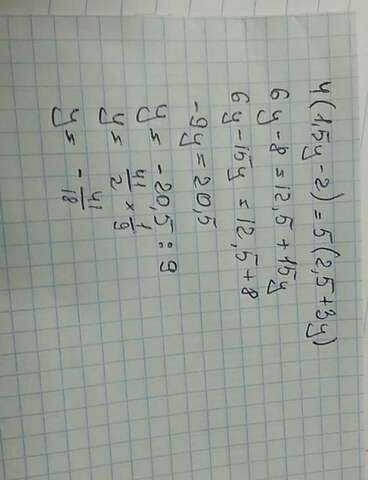 4(1,5y-2)=5(2,5+3y)
6y-8=12,5+15y
6y-15y=12,5+8
-9y=20,5
y=-20,5:9
y= 41/2 × 1/9
y= -41/18